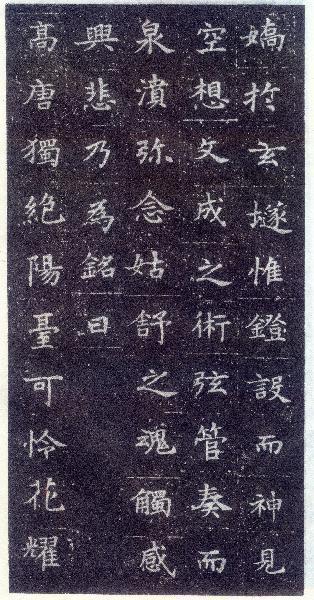 嫣於玄㙜惟鐙設而神見
空想文成之術弦管奏而
泉濆弥念姑舒之魂觸感
興悲乃為銘曰
高唐獨絶陽臺可怜花耀